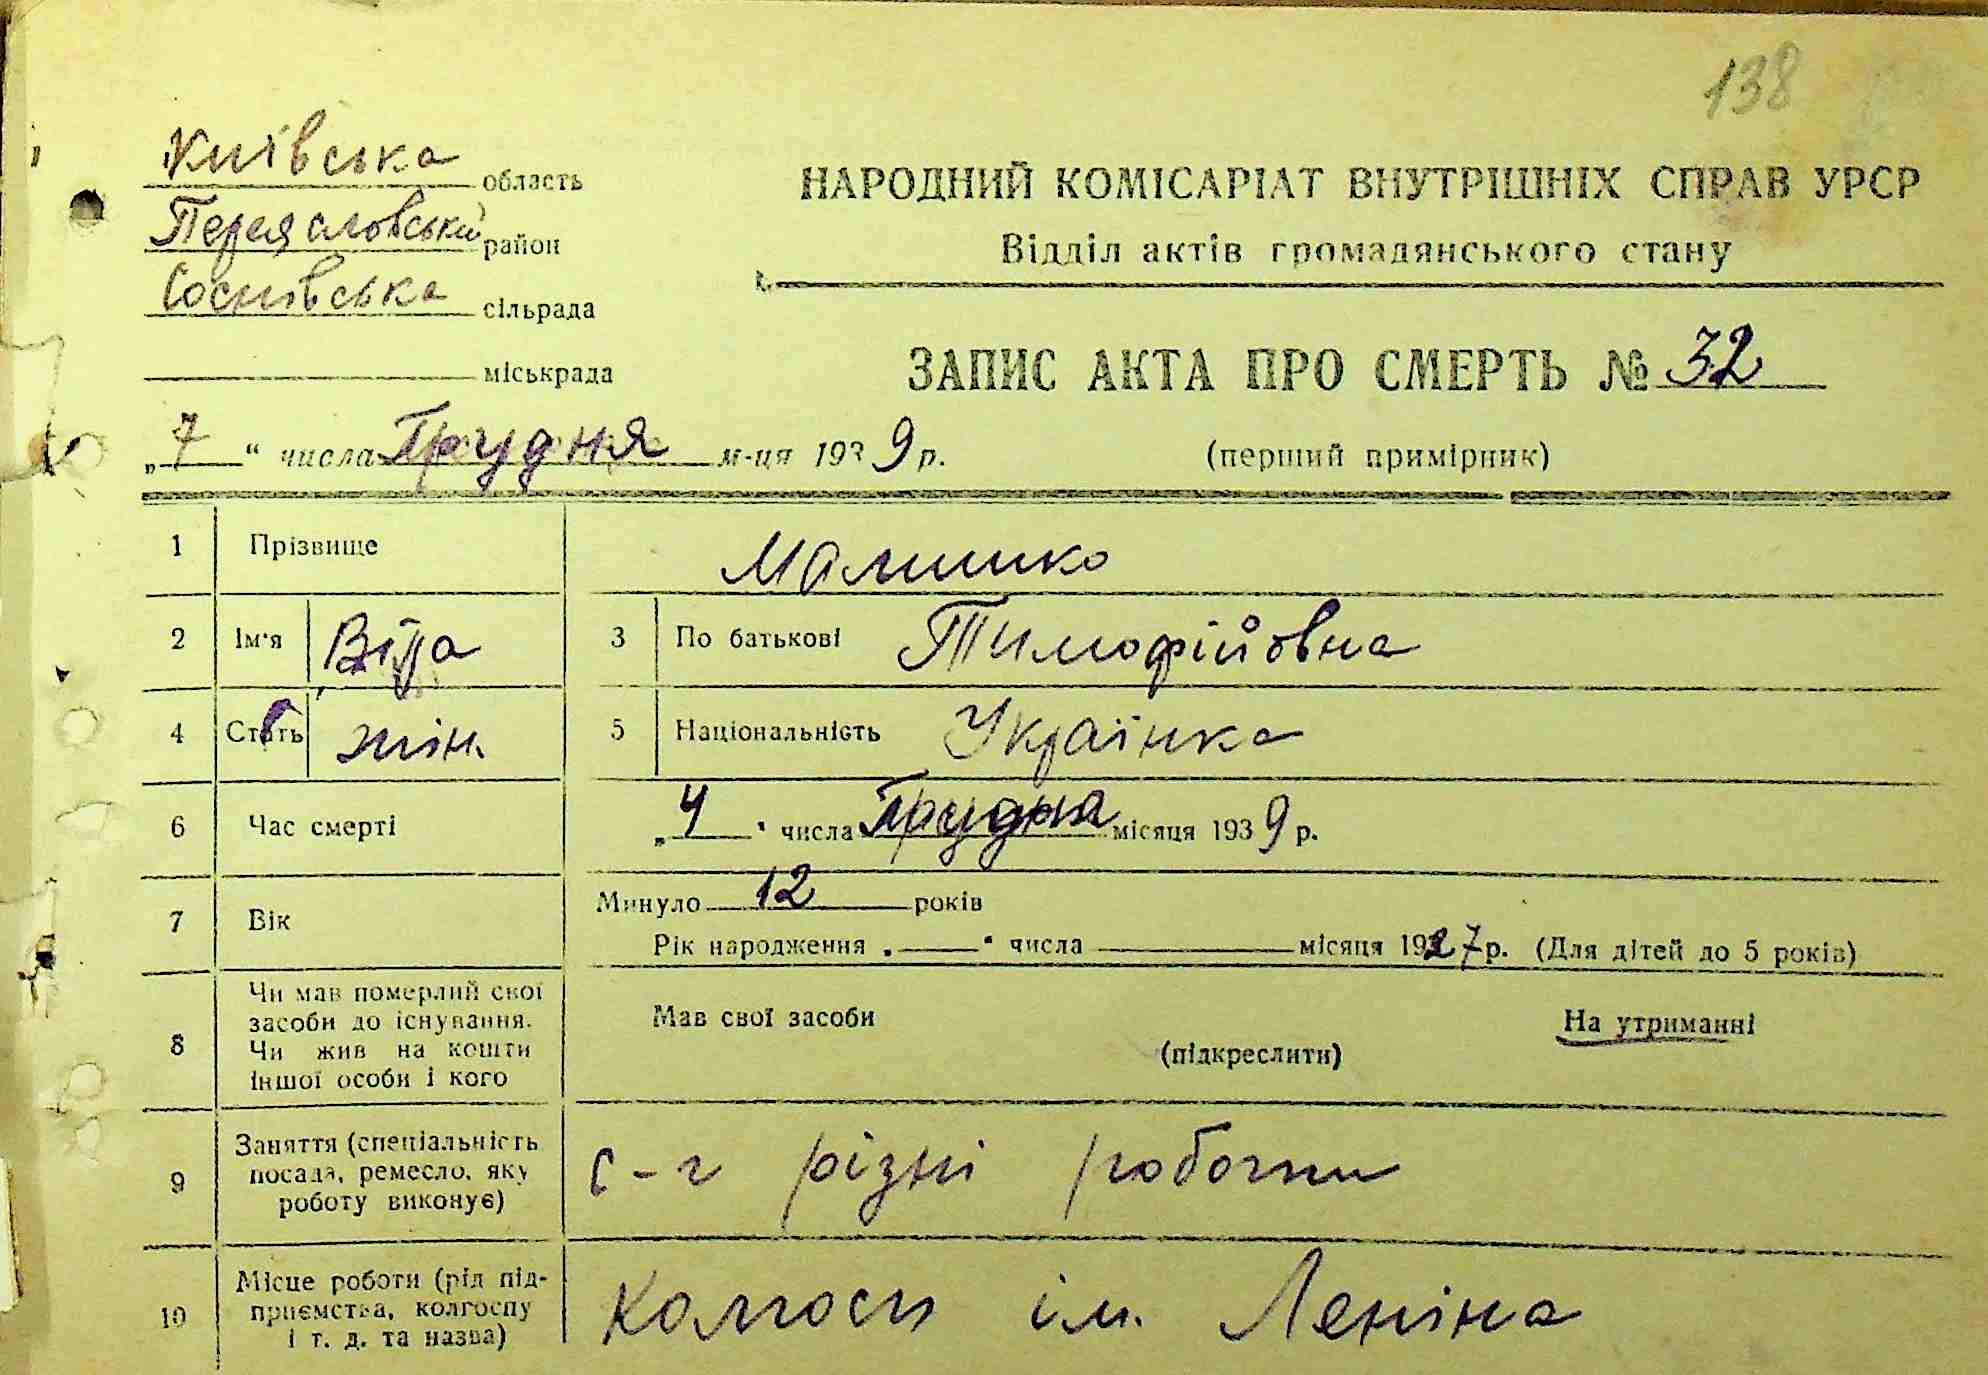 138
Київська область
Переяславський район
Соснівська сільрада
міськрада
НАРОДНИЙ КОМІСАРІАТ ВНУТРІШНІХ СПРАВ УРСР
Відділ актів громадянського стану
ЗАПИС АКТА ПРО СМЕРТЬ № 32
„7“ числа Грудня м-ця 1939 р.
(перший примірник)
1 Прізвище Малишко
2 Ім'я Віра 3 По батькові Тимофійовна
4 Стать жін. 5 Національність Українка
6 Час смерті „4“ числа Грудня місяця 1939 р.
7 Вік Минуло 12 років
Рік народження „ “ числа місяця 1927 р. (Для дітей до 5 років)
8 Чи мав померлий свої засоби до існування. Чи жив на кошти іншої особи і кого
Мав свої засоби На утриманні
(підкреслити)
9 Заняття (спеціальність посада, ремесло, яку роботу виконує) с-г різні
10 Місце роботи (рід підприємства, колгоспу і т. д. та назва) Колгосп ім. Леніна